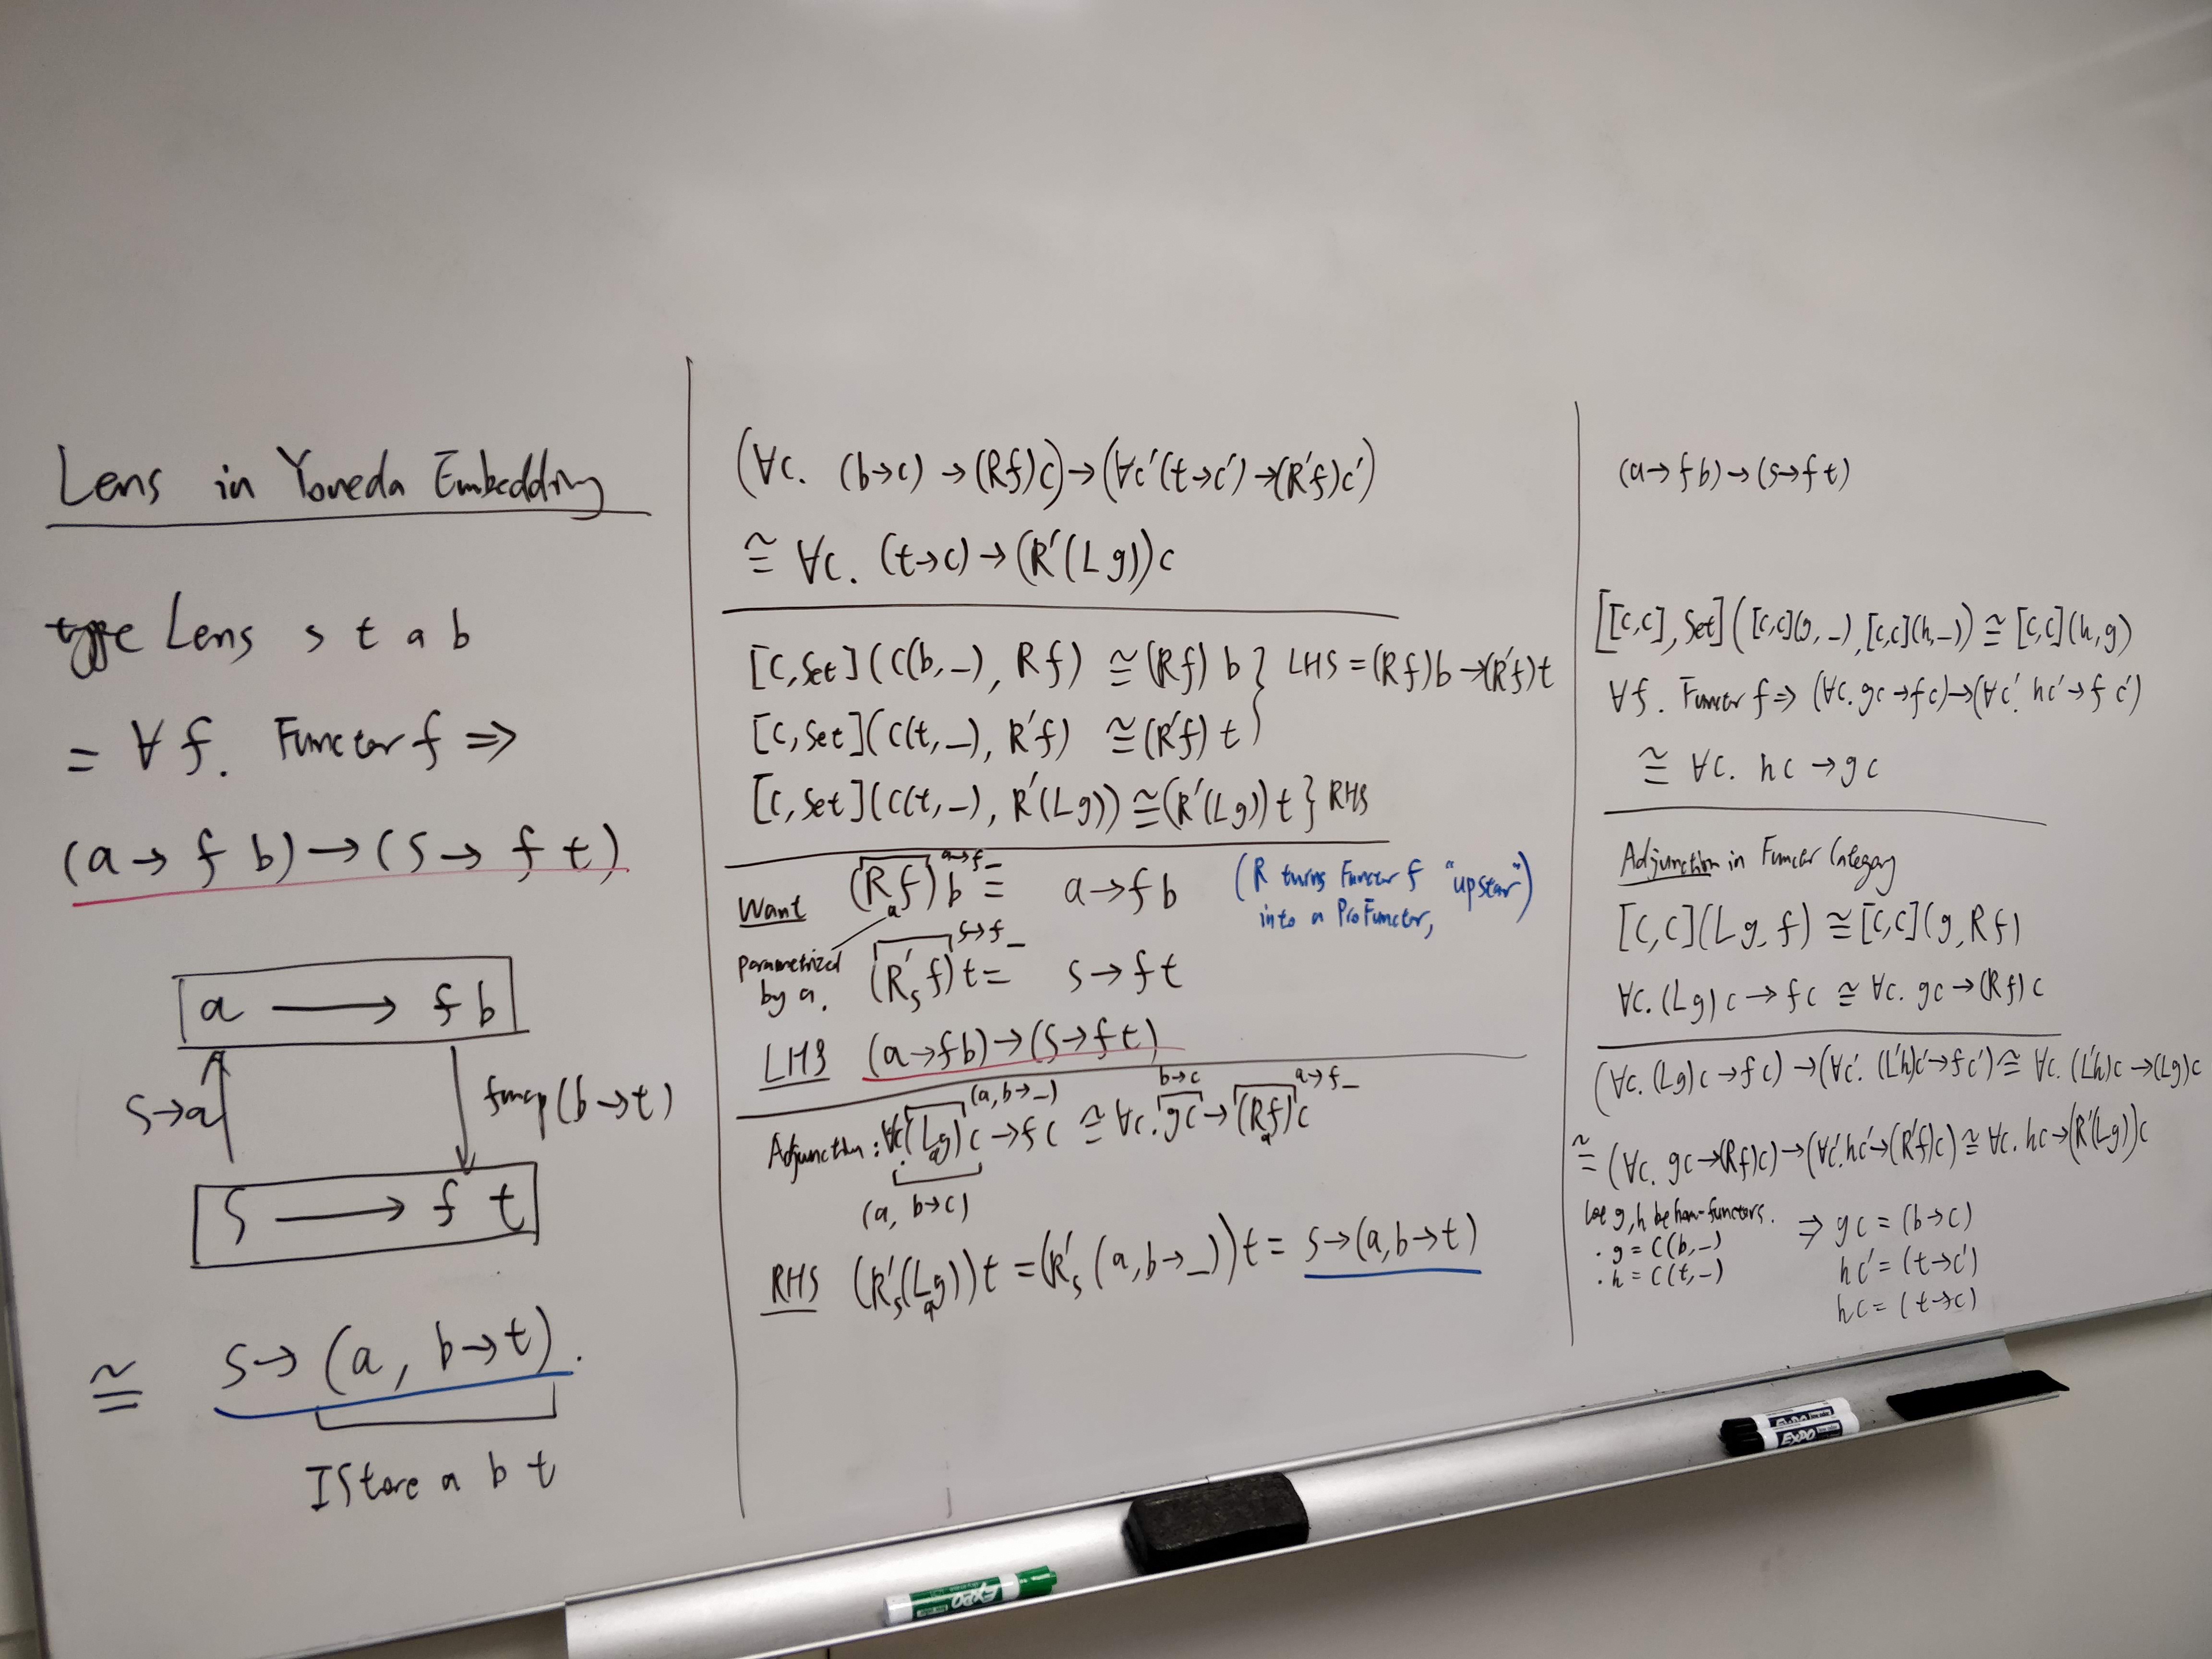 Lens in Yoneda Embedding
type Lens s t a b
= ∀ f. Functor f ⇒
(a → f b) → (s → f t)
a → f b
s → a
fmap (b → t)
s → f t
≅ s → (a, b → t).
IStore a b t
(∀c. (b→c) → (Rf)c) → (∀c' (t→c') → (R'f)c')
≅ ∀c. (t→c) → (R'(Lg))c
[C,Set](C(b,_), Rf) ≅ (Rf) b } LHS = (Rf)b → (R'f)t
[C,Set](C(t,_), R'f) ≅ (R'f) t
[C,Set](C(t,_), R'(Lg)) ≅ (R'(Lg)) t } RHS
a→f_
Want (R_a f) b = a → f b
(R turns Functor f "upstar"
into a ProFunctor,)
parametrized
by a.
s→f_
(R'_s f) t = s → f t
LHS (a→f b) → (s→f t)
(a, b→_) b→c a→f_
Adjunction: ∀c (L_a g) c → f c ≅ ∀c. g c → (R_a f) c
(a, b→c)
RHS (R'_s (L_a g)) t = (R'_s (a, b→_)) t = s → (a, b→t)
(a→f b) → (s→f t)
[[C,C], Set]([C,C](g,_), [C,C](h,_)) ≅ [C,C](h,g)
∀f. Functor f ⇒ (∀c. gc → fc) → (∀c'. hc' → f c')
≅ ∀c. hc → gc
Adjunction in Functor Category
[C,C](Lg, f) ≅ [C,C](g, Rf)
∀c. (Lg) c → f c ≅ ∀c. gc → (Rf) c
(∀c. (Lg)c → fc) → (∀c'. (L'h)c' → fc') ≅ ∀c. (L'h)c → (Lg)c
≅ (∀c. gc → (Rf)c) → (∀c'. hc' → (R'f)c) ≅ ∀c. hc → (R'(Lg))c
Let g, h be hom-functors.
· g = C(b,_)
· h = C(t,_)
⇒ gc = (b→c)
hc' = (t→c')
hc = (t→c)
EXPO
EXPO
EXPO